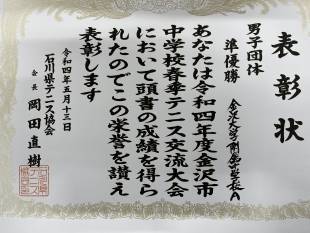 表彰状
男子団体
準優勝
金沢大学附属中学校A
あなたは令和四年度金沢市
中学校春季テニス交流大会
において頭書の成績を得ら
れたのでこの栄誉を讃え
表彰します
令和四年五月十三日
石川県テニス協会
会長 岡田直樹